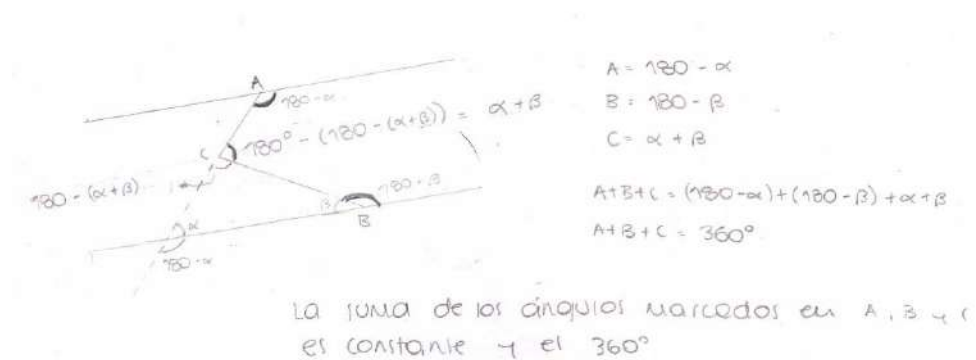 A
180-α
C
180° - (180 - (α+β)) = α+β
180 - (α+β)
180-β
β
B
α
180-α
A = 180 - α
B = 180 - β
C = α + β
A+B+C = (180-α)+(180-β)+α+β
A+B+C = 360°
La suma de los ángulos marcados en A, B y C
es constante y es 360°